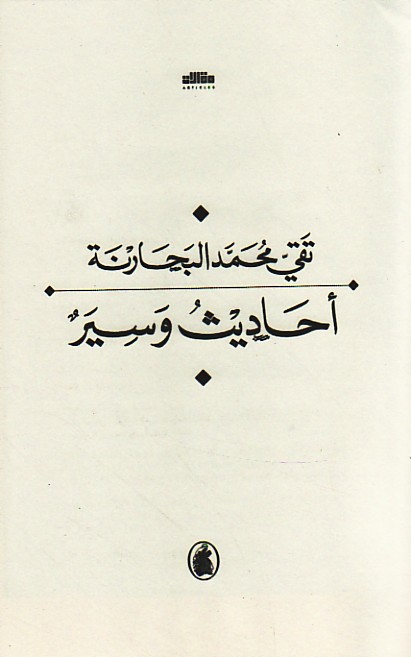 مقالات
ARTICLES
تَقيّ مُحَمَّد البَحَارْنَة
أحَادِيْثُ وَسِيَرٌ